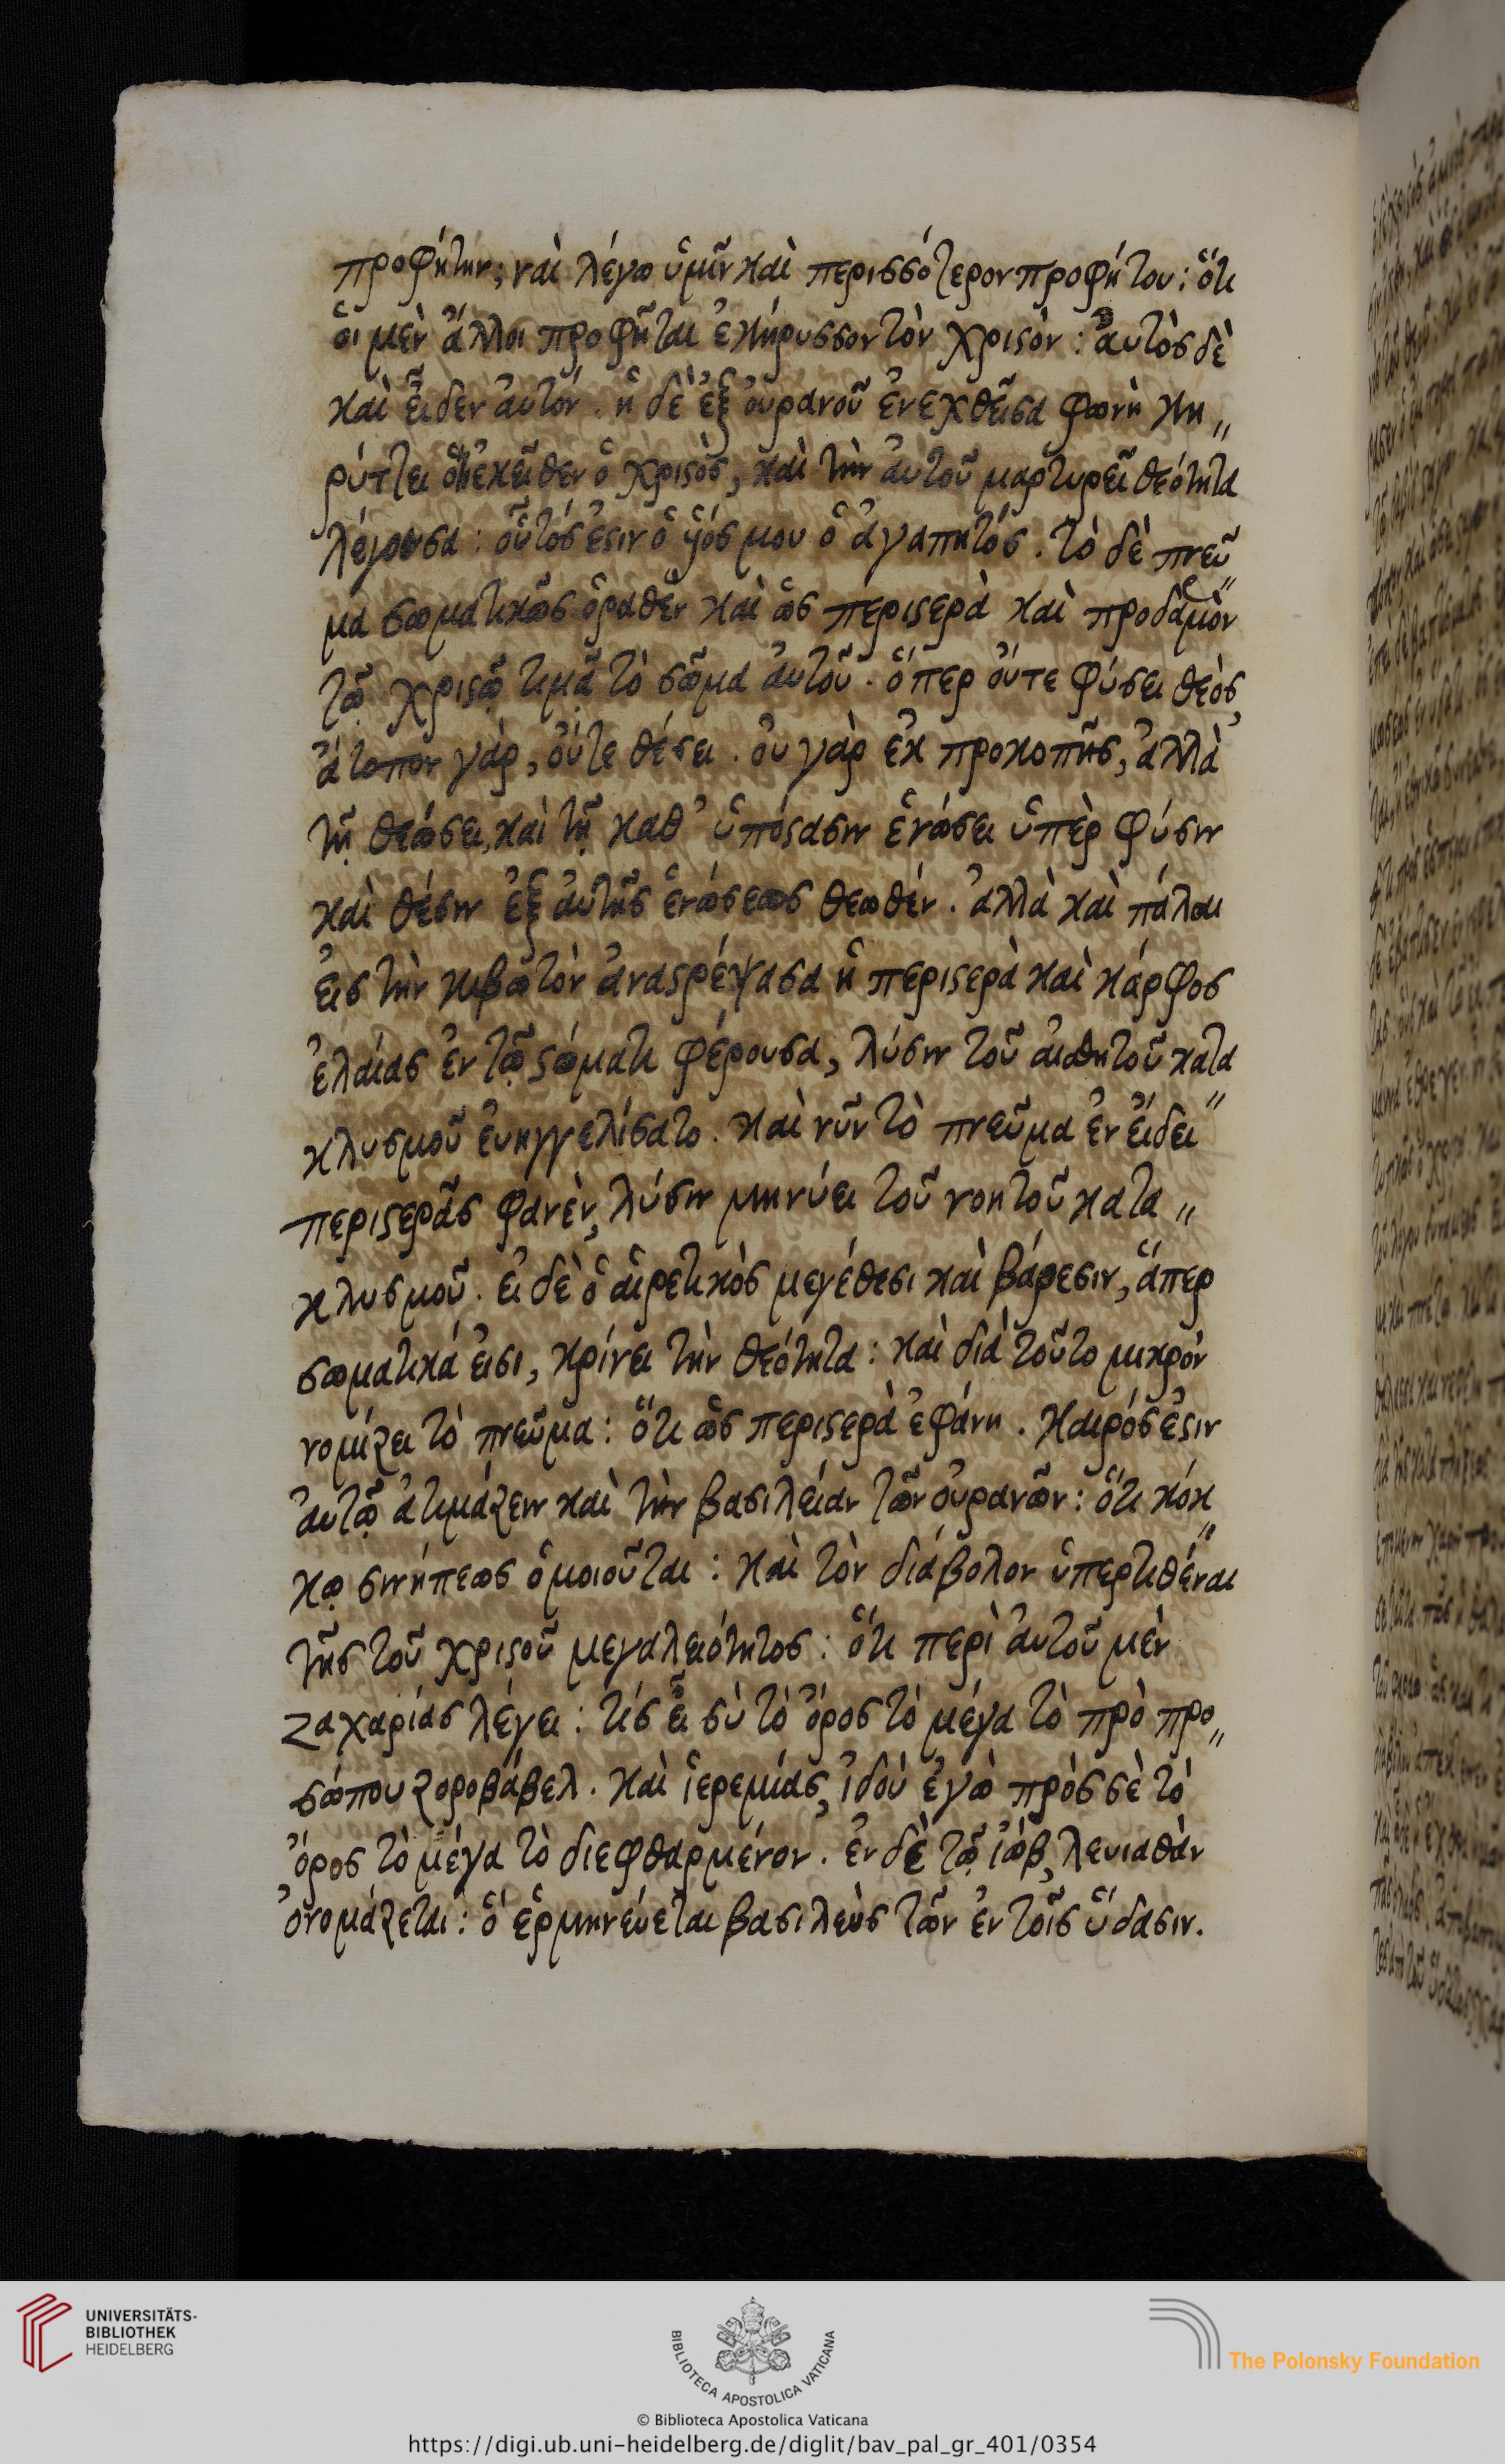 προφήτην; ναὶ λέγω ὑμῖν καὶ περισσότερον προφήτου: ὅτι
ὁι μὲν ἄλλοι προφῆται ἐκήρυσσον τὸν χριστὸν: ἀυτὸς δὲ
καὶ ἐῖδεν ἀυτόν. ἡ δὲ ἐξ ὀυρανοῦ ἐνεχθεῖσα φωνὴ κη„
ρύττει ὅτι ἐκεῖθεν ὁ χριστὸς, καὶ τὴν ἀυτοῦ μαρτυρεῖ θεότητα
λέγουσα: οὗτός ἐστιν ὁ ὑιός μου ὁ ἀγαπητός. τὸ δὲ πνεῦ„
μα σωματικῶς ὁραθὲν καὶ ὡς περιστερὰ καὶ προδαμὸν
τῷ χριστῷ τιμᾷ τὸ σῶμα ἀυτοῦ. ὅπερ ὀύτε φύσει θεὸς,
ἄτοπον γὰρ, ὀύτε θέσει. ὀυ γὰρ ἐκ προκοπῆς, ἀλλὰ
τῇ θεώσει, καὶ τῇ καθ' ὑπόστασιν ἑνώσει ὑπὲρ φύσιν
καὶ θέσιν ἐξ ἀυτῆς ἑνώσεως θεωθέν. ἀλλὰ καὶ πάλαι
ἐις τὴν κιβωτὸν ἀναστρέψασα ἡ περιστερὰ καὶ κάρφος
ἐλαίας ἐν τῷ στόματι φέρουσα, λύσιν τοῦ αἰσθητοῦ κατα„
κλυσμοῦ ἐυηγγελίσατο. καὶ νῦν τὸ πνεῦμα ἐν ἐίδει
περιστερᾶς φανὲν, λύσιν μηνύει τοῦ νοητοῦ κατα„
κλυσμοῦ. ἐι δὲ ὁ αἱρετικὸς μεγέθεσι καὶ βάρεσιν, ἅπερ
σωματικά ἐισι, κρίνει τὴν θεότητα: καὶ διὰ τοῦτο μικρὸν
νομίζει τὸ πνεῦμα: ὅτι ὡς περιστερὰ ἐφάνη. καιρός ἐστιν
ἀυτῷ ἀτιμάζειν καὶ τὴν βασιλείαν τῶν ὀυρανῶν: ὅτι κόκ„
κῳ σινήπεως ὁμοιοῦται: καὶ τὸν διάβολον ὑπερτιθέναι
τῆς τοῦ χριστοῦ μεγαλειότητος: ὅτι περὶ ἀυτοῦ μὲν
ζαχαρίας λέγει: τίς ἐῖ σὺ τὸ ὄρος τὸ μέγα τὸ πρὸ προ„
σώπου ζοροβάβελ. καὶ ἱερεμίας, ἰδοὺ ἐγὼ πρὸς σὲ τὸ
ὄρος τὸ μέγα τὸ διεφθαρμένον. ἐν δὲ τῷ ἰὼβ, λευιαθὰν
ὀνομάζεται: ὃ ἑρμηνεύεται βασιλεὺς τῶν ἐν τοῖς ὕδασιν.
UNIVERSITÄTS-
BIBLIOTHEK
HEIDELBERG
BIBLIOTECA APOSTOLICA VATICANA
The Polonsky Foundation
© Biblioteca Apostolica Vaticana
https://digi.ub.uni-heidelberg.de/diglit/bav_pal_gr_401/0354